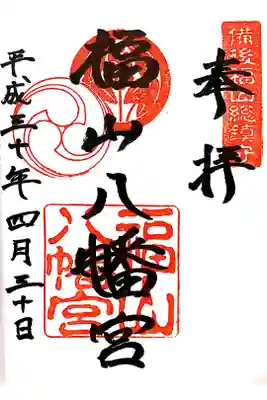 備後福山総鎮守
奉拝
福山八幡宮
福山八幡宮
平成三十年四月三十日